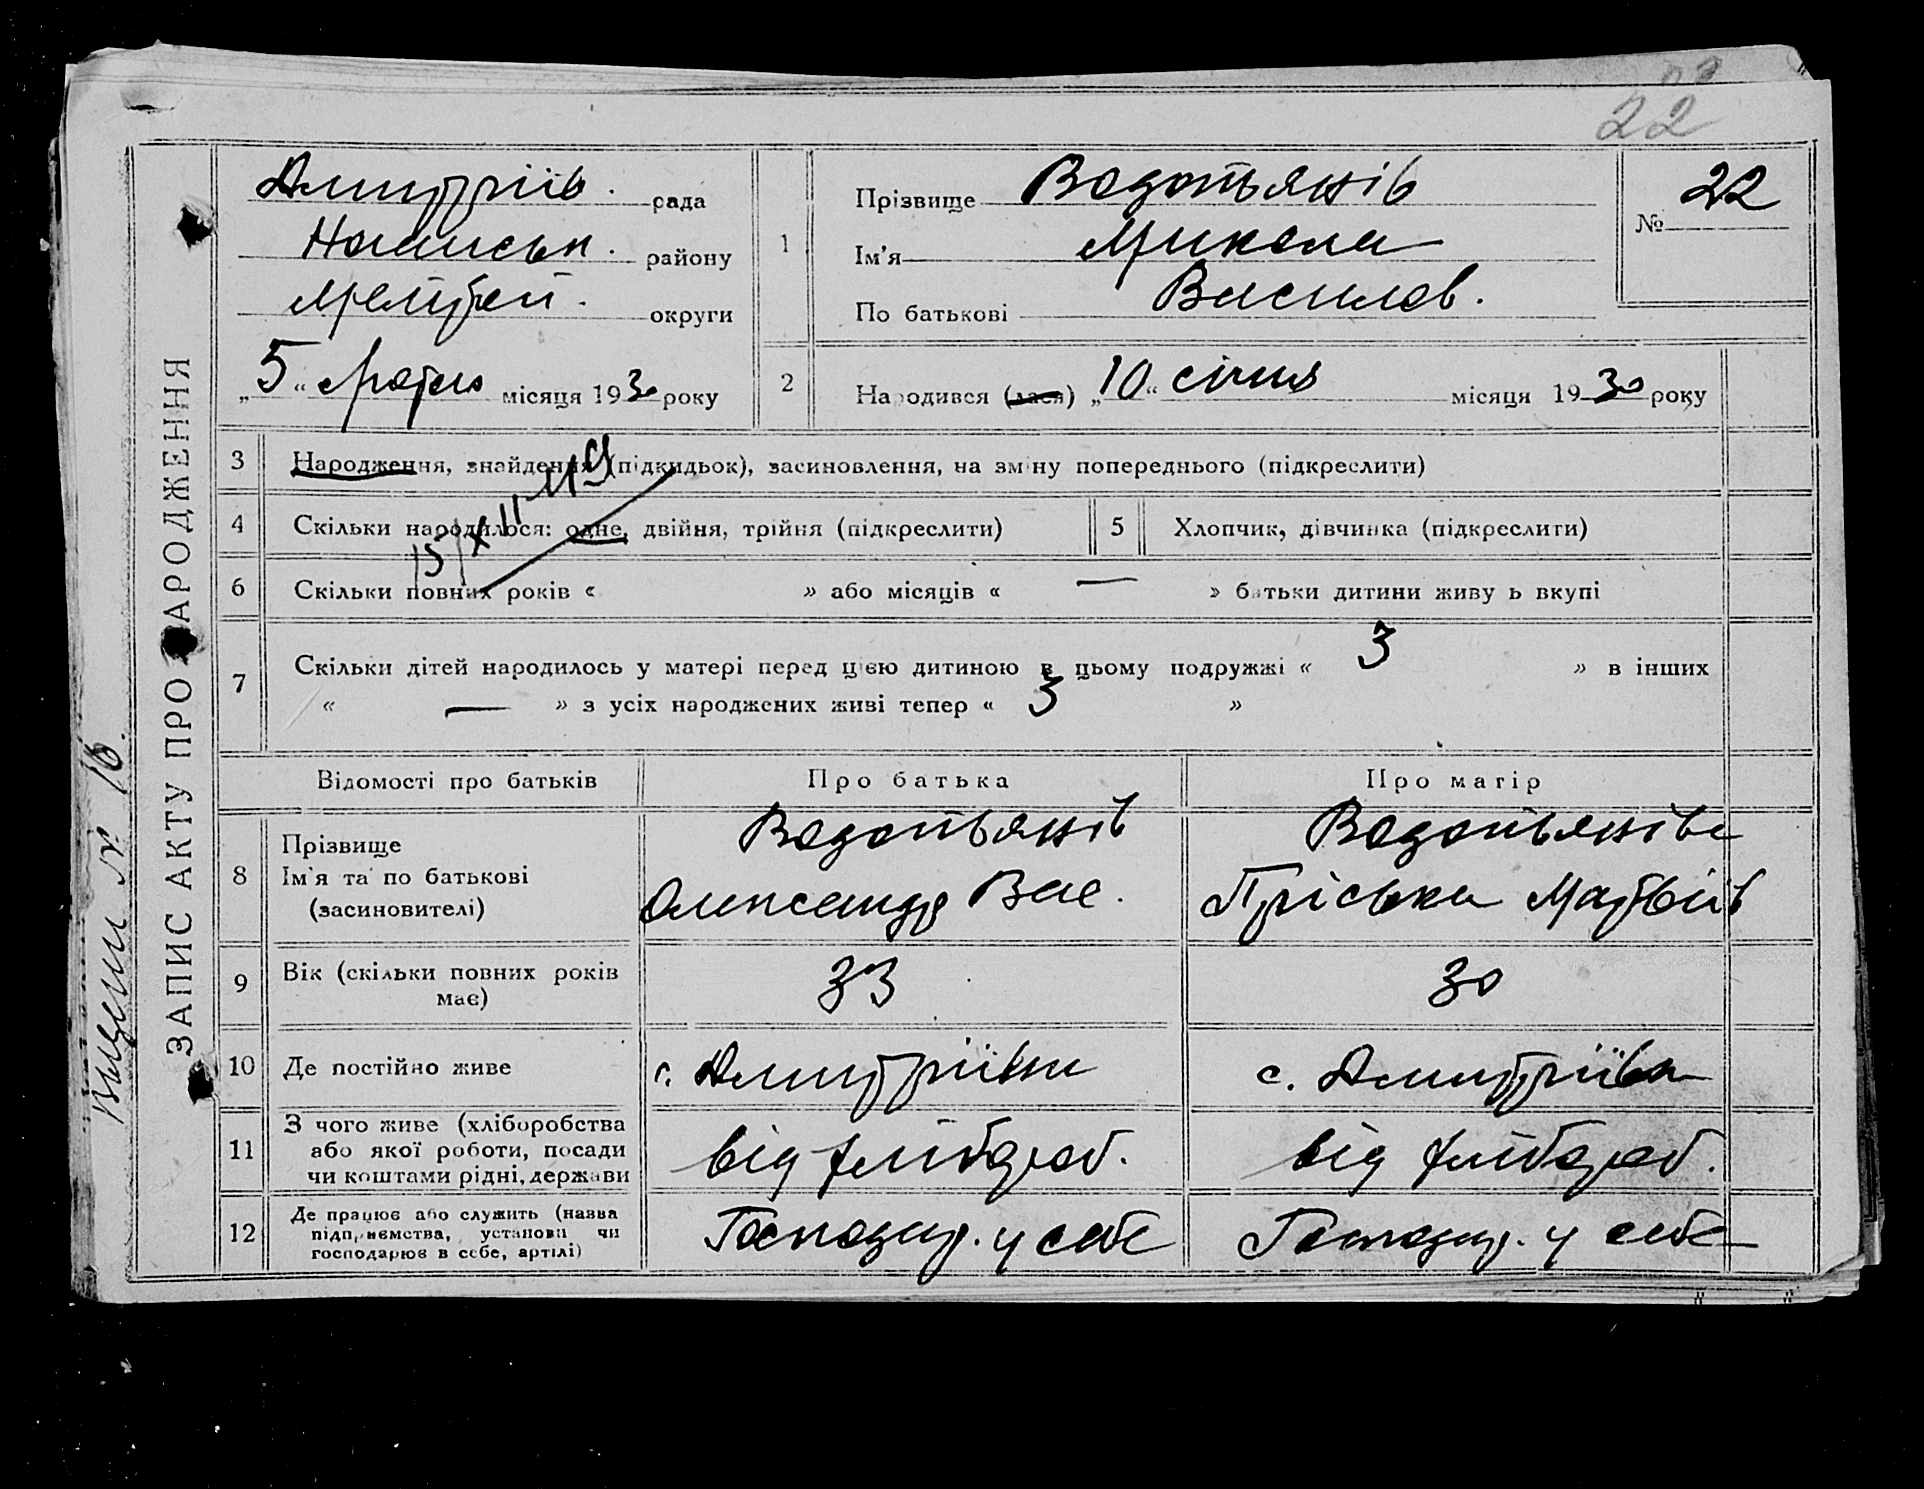 22
Дмитріїв. рада
районy
Меліт. округи
5 "лютого місяця 1930 року
1
Прізвище Водоп'янів
Ім'я Микола
По батькові Василов.
№ 22
2
Народився (лася) „10“ січня місяця 1930 року
3 Народження, знайдення (підкидьок), засиновлення, на зміну попереднього (підкреслити)
15/XII 49
4 Скільки народилося: одне, двійня, трійня (підкреслити)
5 Хлопчик, дівчинка (підкреслити)
6 Скільки повних років « » або місяців « — » батьки дитини живуть вкупі
7 Скільки дітей народилось у матері перед цією дитиною в цьому подружжі « 3 » в інших
« — » з усіх народжених живі тепер « 3 »
Відомості про батьків Про батька Про матір
8 Прізвище
Ім'я та по батькові
(засиновителі)
Водоп'янів
Олександр Вас.
Водоп'янівa
Пріська Матвіїв
9 Вік (скільки повних років
має)
33
30
10 Де постійно живе
с. Дмитріївка
с. Дмитріївка
11 З чого живе (хліборобства
або якої роботи, посади
чи коштами рідні, держави
від хлібороб.
від хлібороб.
12 Де працює або служить (назва
підприємства, установи чи
господарює в себе, артілі)
Господар. у себе
Господар. у себе
ЗАПИС АКТУ ПРО НАРОДЖЕННЯ
№ 16.